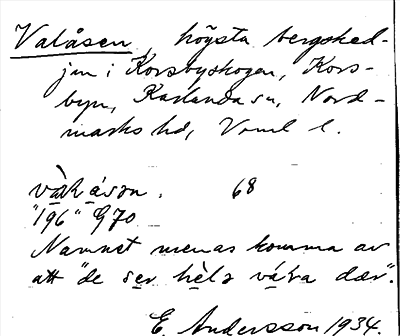 Valåsen, högsta bergsked-
jan i Korsbyskogen, Kors-
byn, Karlanda sn, Nord-
marks hd, Vrml l.
68
"196" G70
Namnet menas komma av
att "de ser hela våra där".
E. Andersson 1934.